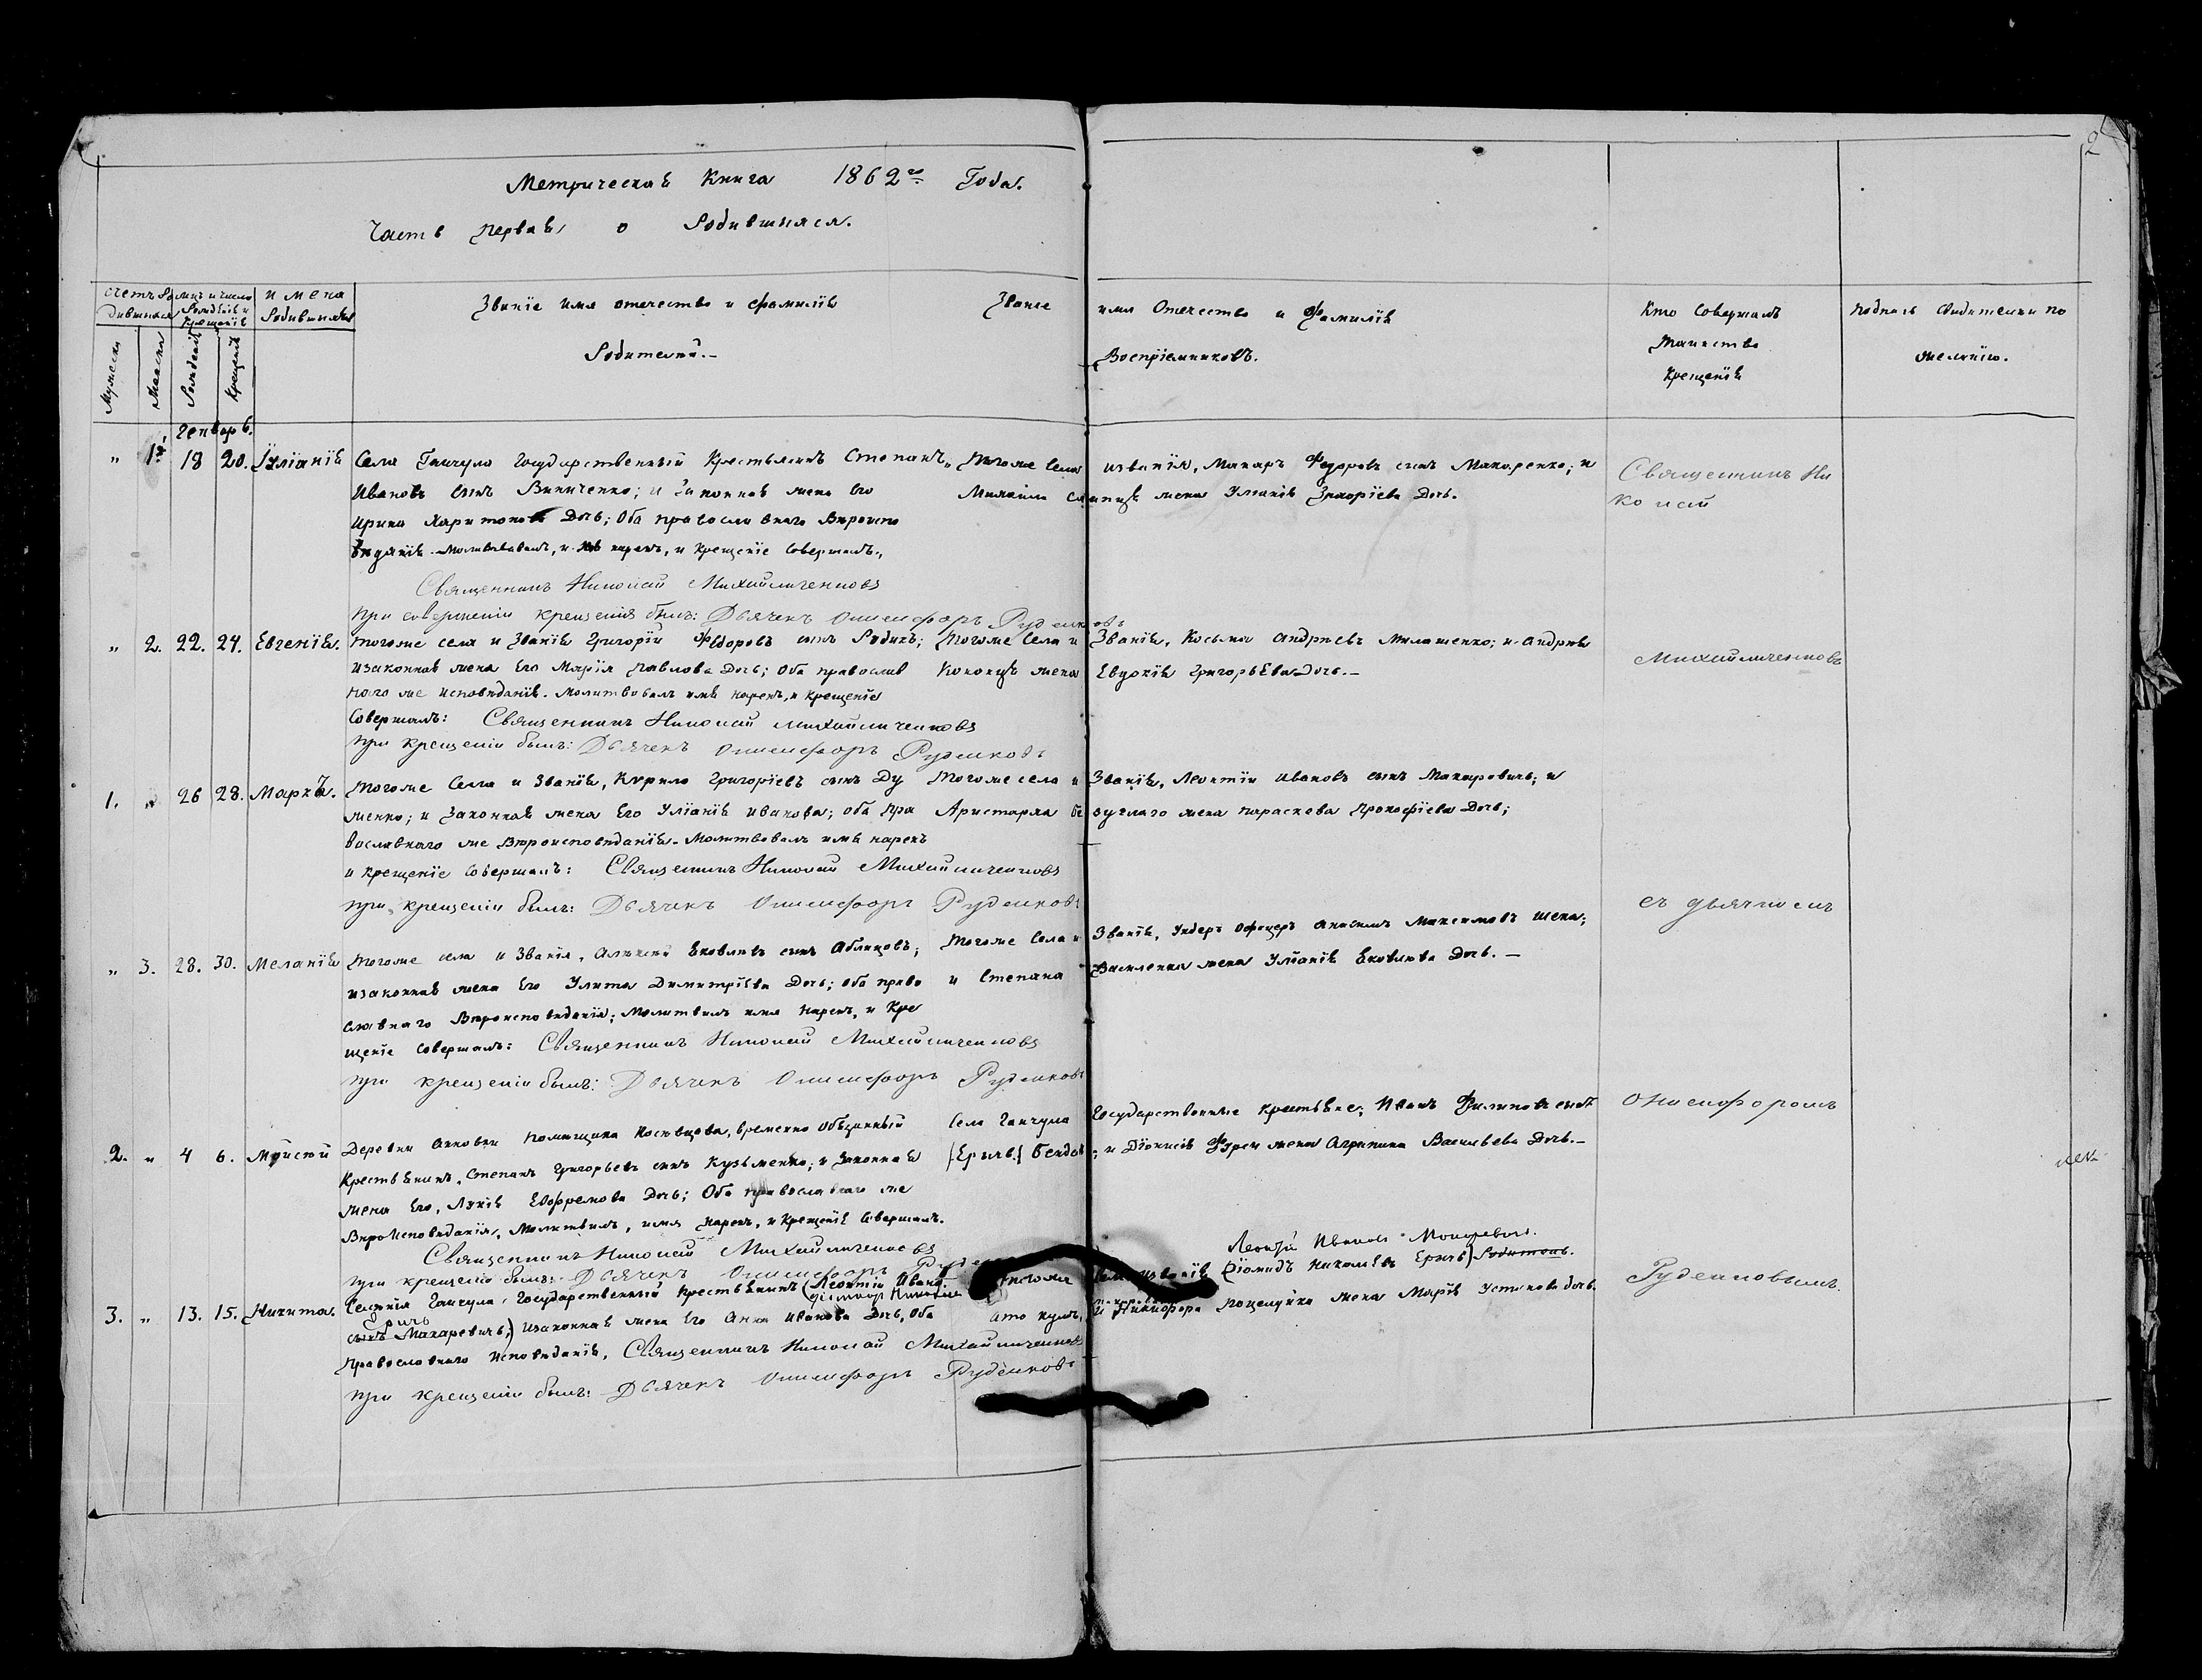 2
Метрическаѣ Книга 1862го Года.
Часть перваѣ о Родившихся.
счетъ Ро дившихся
мцъ и число Рожденіѣ и Крещеніѣ
имена Родившихся
Званіе имя отечество и фамиліѣ
Родителей.
Званіе имя Отечество и Фамиліѣ
Воспріемниковъ.
Кто Совершалъ
Таинство
Крещеніѣ
подпись свидителей по
желанію.
Мужеска
Женска
Рожденіѣ
Крещеніѣ
Генварь.
" 1й 18 20. Іуліаніѣ
Села Ганчула Государственный Крестьянинъ Степанъ
Ивановъ сынъ Винниченко; и Законнаѣ жена Его
Ирина Харитонова Дочь; Оба православнаго Вѣроиспо
вѣданіѣ. Молитвовалъ, имѣ нарекъ, и Крещеніе Совершалъ.
Священникъ Николай Михайличенковъ
при совершеніи крещенія былъ: Дьячекъ Онисифоръ Руденковъ
Тогоже Села изванія, Макаръ Федоровъ сынъ Макаренко; и
Михаила жена Уліаніѣ Захаріева Дочь.
Священникъ Ни
колай
" 2. 22. 24. Евгеніѣ.
тогоже села и Званіѣ Григорій Федоровъ сынъ Рудикъ;
изаконнаѣ жена Его Маріѣ Павлова Дочь; Оба православ
наго же исповѣданіѣ. Молитвовалъ имѣ нарекъ, и Крещеніе
Совершалъ: Священникъ Николай Михайличенковъ
при крещеніи былъ: Дьячекъ Онисифоръ Руденковъ
Тогоже Села и Званіѣ, Косьма Андреевъ Милашенко; и Андрея
жена Евдокіѣ Григорьева Дочь.
Михайличенковъ
1. " 26 28. Маркъ.
Тогоже Села и Званіѣ, Курило Григоріевъ сынъ Ду
менко; и Законнаѣ жена Его Уліаніѣ Иванова; оба Пра
вославнаго же Вѣроисповѣданіѣ. Молитвовалъ имѣ нарекъ
и крещеніе Совершалъ: Священникъ Николай Михайличенковъ
при крещеніи былъ: Дьячекъ Онисифоръ Руденковъ
Тогоже села и Званіѣ, Леонтій Ивановъ сынъ Макаревичь; и
Аристарха жена Параскева Прокофіева Дочь;
съ дьячкомъ
" 3. 28. 30. Меланіѣ
Тогоже села и Званія, Алексѣй Яковлевъ сынъ Облицовъ;
изаконнаѣ жена Его Улита Димитріева Дочь; оба право
славнаго Вѣроисповѣданіѣ; Молитвилъ имя Нарекъ, и Кре
щеніе Совершалъ: Священникъ Николай Михайличенковъ
при крещеніи былъ: Дьячекъ Онисифоръ Руденковъ
Тогоже Села и Званіѣ, Ундеръ Офицеръ Анисимъ Максимовъ
и Степана Василенка жена Уліаніѣ Яковлева Дочь.
Онисифоромъ
2. " 4 6. Мойсей
Деревни Анновки Помѣщика временно Обязанный
Крестьянинъ, Степанъ Григорьевъ сынъ Кузьменко; и Законнаѣ
Жена Его, Лукіѣ Ефремова Дочь; Оба православнаго же
Вѣроисповѣданія, Молитвилъ, имя Нарекъ, и Крещеніе Совершалъ.
Священникъ Николай Михайличенковъ
при крещеніи былъ: Дьячекъ Онисифоръ
Села Ганчула Государственные Крестьяне; Иванъ Филиповъ сынъ
и Діонисія жена Агрипина Васильева Дочь.
Руденковымъ
3. " 13. 15. Никита.
Селеніѣ Ганчула, Государственный Крестьянинъ (Леонтій Иванов
Еричь
сынъ Макаревичь;) изаконнаѣ жена Его Анна Иванова Дочь, Оба
Православнаго Исповѣданіѣ, Священникъ Николай Михайличенковъ
при крещеніи былъ: Дьячекъ Онисифоръ Руденковъ
Леонтій Ивановъ Макаревичь.
Тогоже Діомидъ Николаевъ Еричь) Родитель.
и Никифора Поцелуйка жена Маріѣ Устинова дочь.